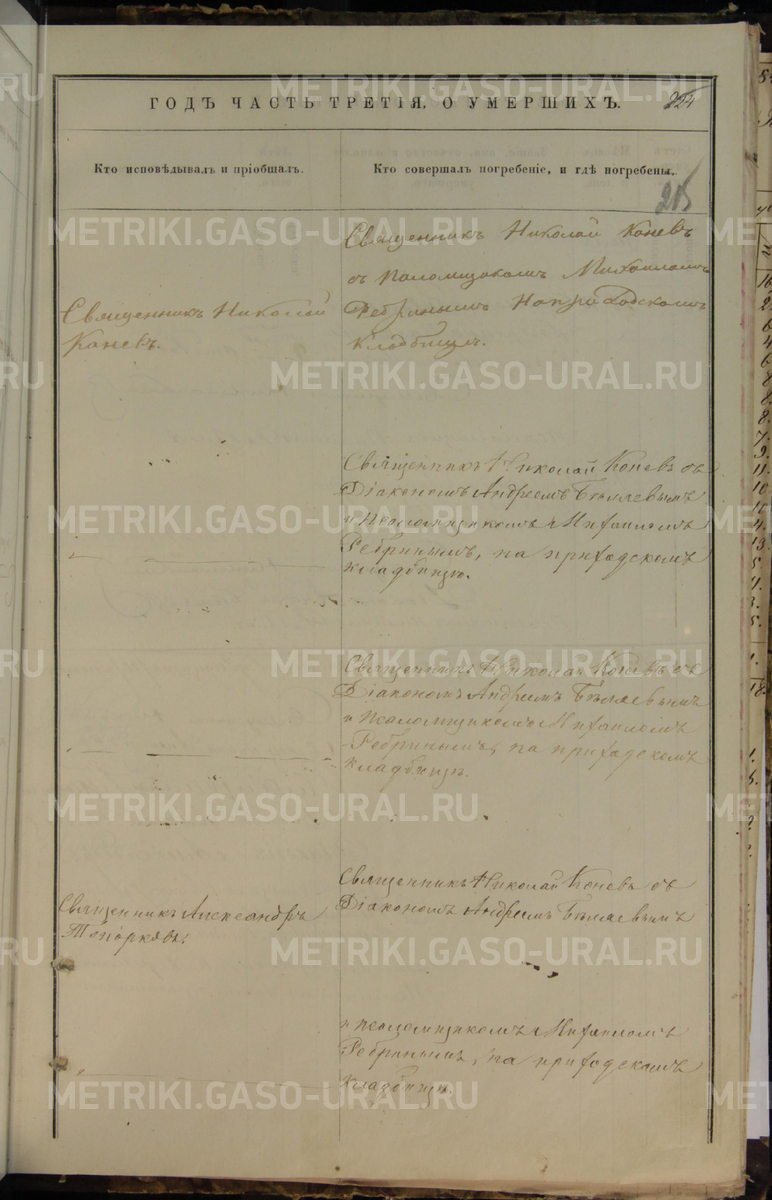 ГОДЪ ЧАСТЬ ТРЕТІЯ, О УМЕРШИХЪ. 224
Кто исповѣдывалъ и пріобщалъ.
Кто совершалъ погребеніе, и гдѣ погребены.
215
Священникъ Николай Коневъ
съ Псаломщикомъ Михаиломъ
Ребринымъ На приходскомъ
кладбищѣ.
Священникъ Николай
Коневъ.
Священникъ Николай Коневъ съ
Діакономъ Андреемъ Бѣляевымъ
и Псаломщикомъ Михаиломъ
Ребринымъ, на приходскомъ
кладбищѣ.
Священникъ Николай Коневъ съ
Діакономъ Андреемъ Бѣляевымъ
и Псаломщикомъ Михаиломъ
Ребринымъ, на приходскомъ
кладбищѣ.
Священникъ Александръ
Топорковъ.
Священникъ Николай Коневъ съ
Діакономъ Андреемъ Бѣляевымъ
и псаломщикомъ Михаиломъ
Ребринымъ, на приходскомъ
кладбищѣ.
METRIKI.GASO-URAL.RU